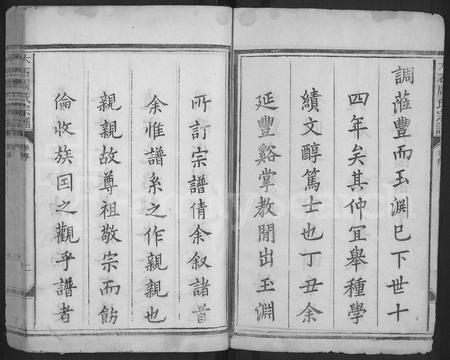 調蒞豐而玉淵已下世十
四年矣其仲冝舉種學
績文醇篤士也丁丑余
延豐谿掌教閒出玉淵
所訂宗譜倩余叙諸首
余惟譜系之作親親也
親親故尊祖敬宗而飭
倫收族囯之觀乎譜者